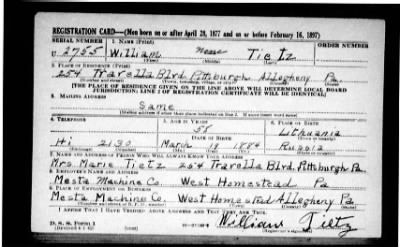 REGISTRATION CARD—(Men born on or after April 28, 1877 and on or before February 16, 1897)
SERIAL NUMBER 1. NAME (Print) ORDER NUMBER
U 2755 William None Tietz
2. PLACE OF RESIDENCE (Print)
254 Travella Blvd. Pittsburgh Allegheny Pa
[THE PLACE OF RESIDENCE GIVEN ON THE LINE ABOVE WILL DETERMINE LOCAL BOARD
JURISDICTION; LINE 2 OF REGISTRATION CERTIFICATE WILL BE IDENTICAL]
3. MAILING ADDRESS
Same
4. TELEPHONE 5. AGE IN YEARS 6. PLACE OF BIRTH
58 Lithuania
DATE OF BIRTH
Hi 2130 March 19 1884 Russia
7. NAME AND ADDRESS OF PERSON WHO WILL ALWAYS KNOW YOUR ADDRESS
Mrs. Marie Tietz 254 Travella Blvd. Pittsburgh Pa
8. EMPLOYER'S NAME AND ADDRESS
Mesta Machine Co. West Homestead Pa
9. PLACE OF EMPLOYMENT OR BUSINESS
Mesta Machine Co. West Homestead Allegheny Pa
I AFFIRM THAT I HAVE VERIFIED ABOVE ANSWERS AND THAT THEY ARE TRUE.
D. S. S. Form 1
William Tietz